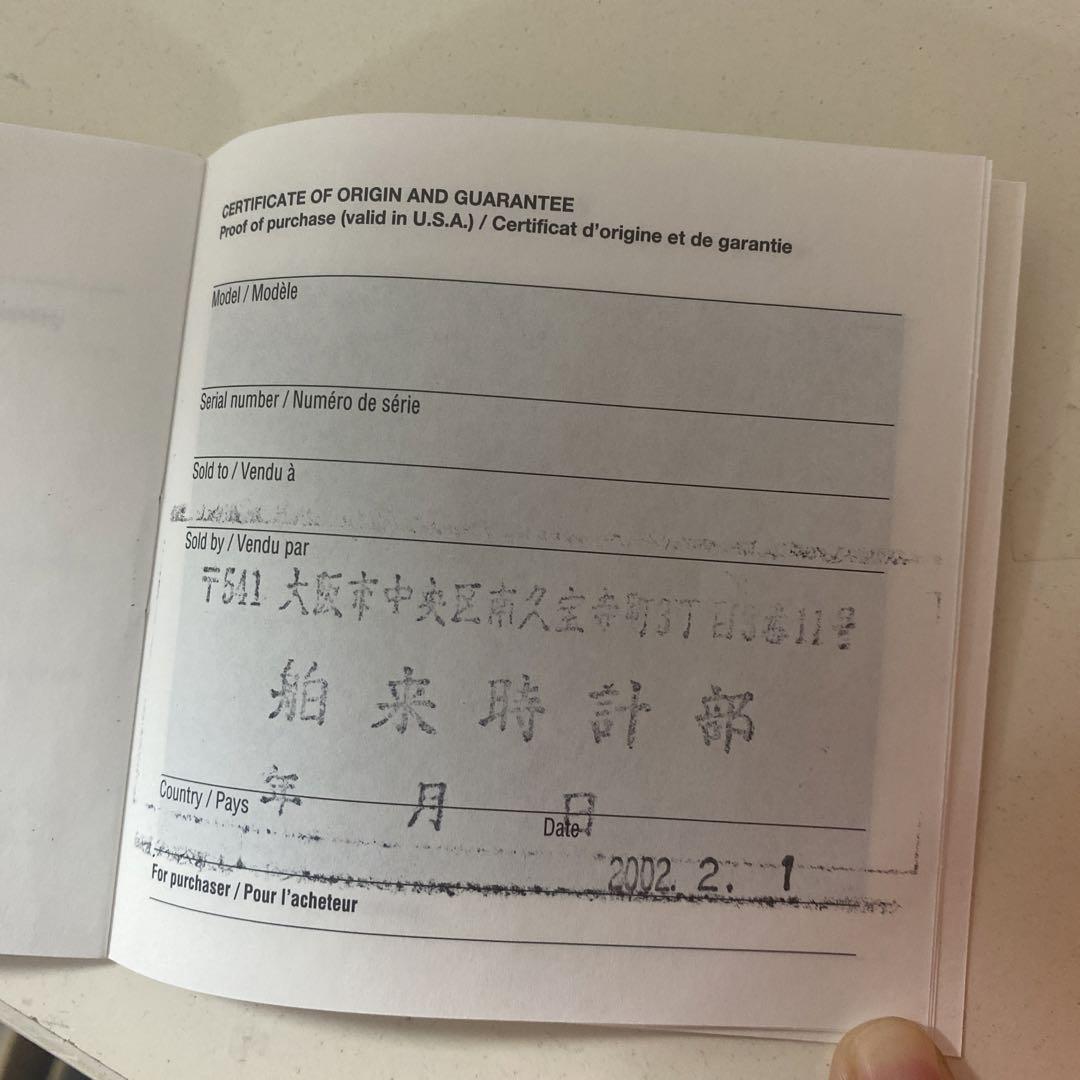 CERTIFICATE OF ORIGIN AND GUARANTEE
Proof of purchase (valid in U.S.A.) / Certificat d'origine et de garantie
Model / Modèle
Serial number / Numéro de série
Sold to / Vendu à
Sold by / Vendu par
〒541 大阪市中央区南久宝寺町3丁目3番11号
舶来時計部
年 月 日
Country / Pays
Date
2002. 2. 1
For purchaser / Pour l'acheteur